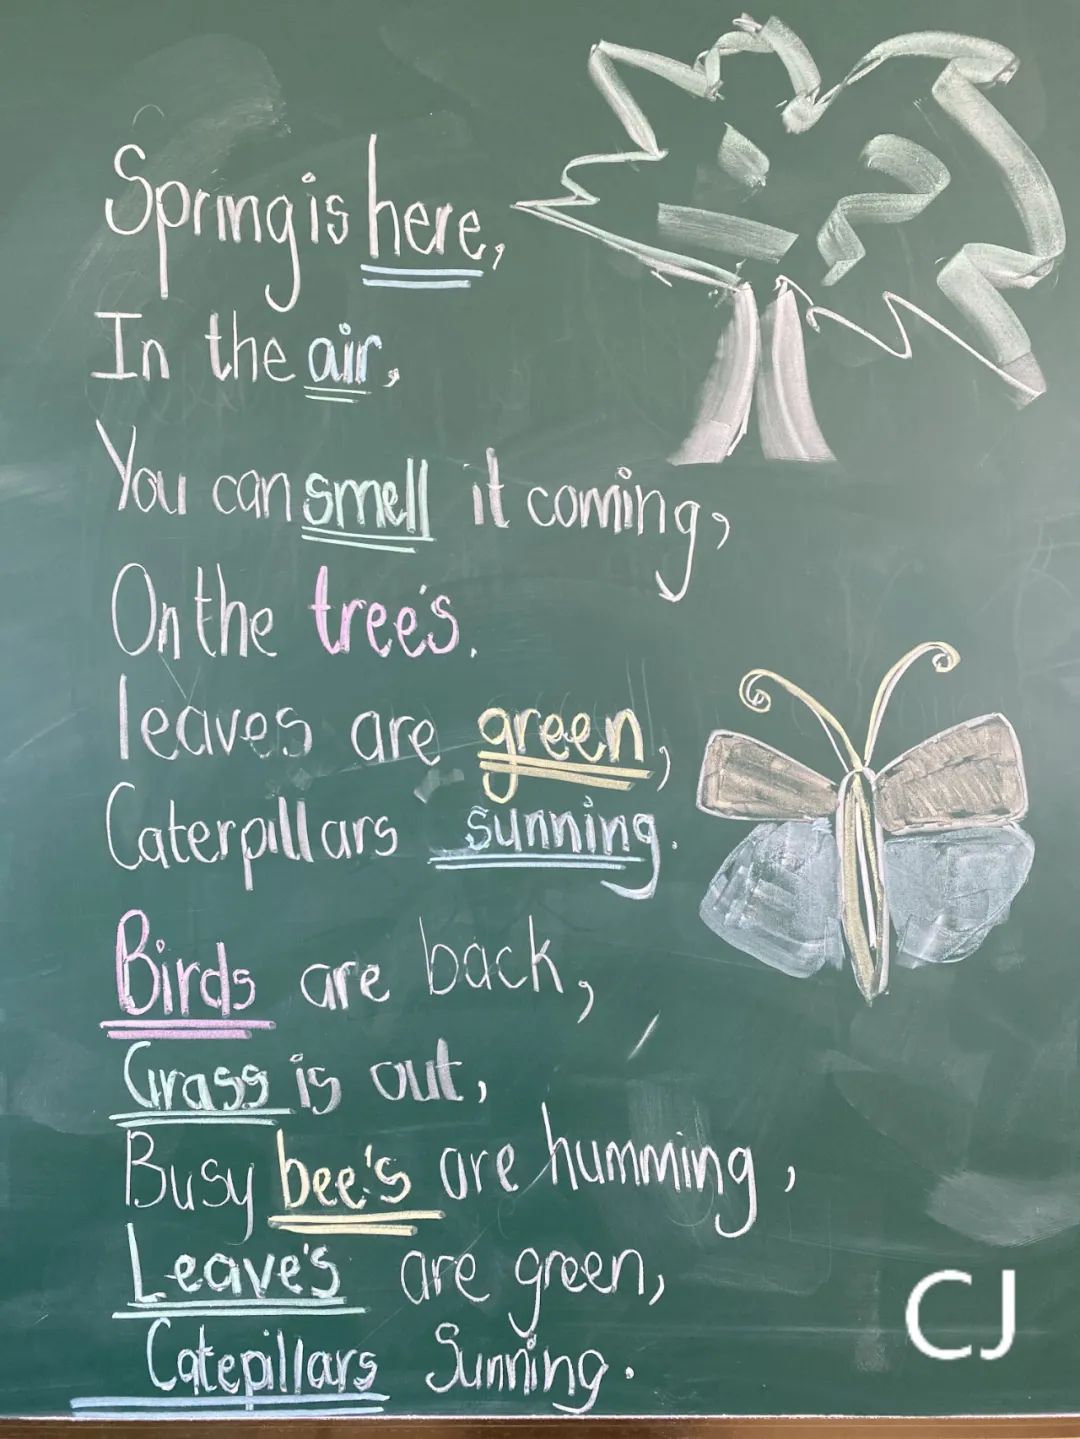 Spring is here,
In the air,
You can smell it coming,
On the tree's.
leaves are green,
Caterpillars sunning.
Birds are back,
Grass is out,
Busy bee's are humming,
Leave's are green,
Catepillars Sunning.
CJ